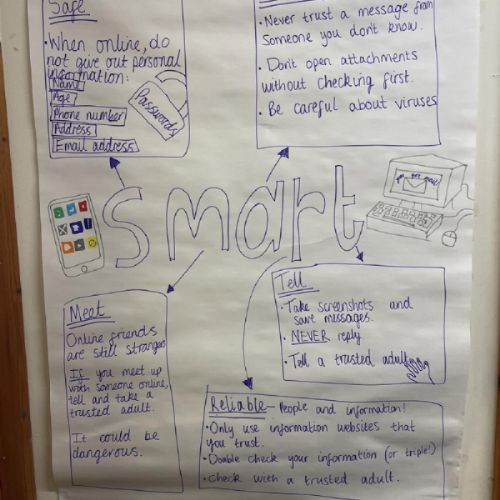 Safe
• When online, do
not give out personal
information:
Name
Age
Phone number
Address
Email address
Passwords
• Never trust a message from
someone you don't know.
• Don't open attachments
without checking first.
• Be careful about viruses
smart
Meet
Online friends
are still strangers
If you meet up
with someone online,
tell and take a
trusted adult.
It could be
dangerous.
Tell
• Take screenshots and
save messages.
• NEVER reply
• Tell a trusted adult
Reliable - People and information!
• Only use information websites that
you trust.
• Double check your information (or triple!)
• Check with a trusted adult.